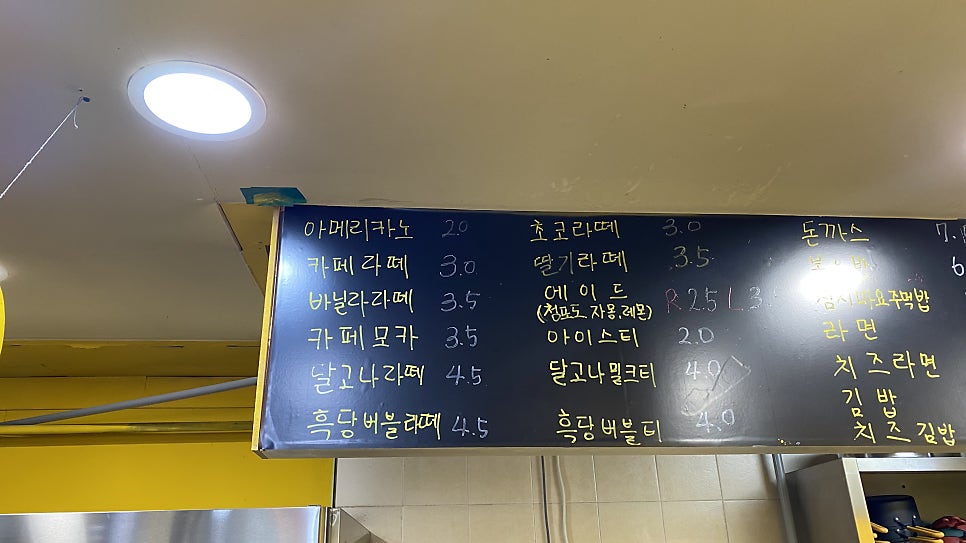 아메리카노 2.0
카페라떼 3.0
바닐라라떼 3.5
카페모카 3.5
달고나라떼 4.5
흑당버블라떼 4.5
초코라떼 3.0
딸기라떼 3.5
에이드 R 2.5 L 3.
(청포도,자몽,레몬)
아이스티 2.0
달고나밀크티 4.0
흑당버블티 4.0
돈까스 7.
6
라면
치즈라면
김밥
치즈김밥